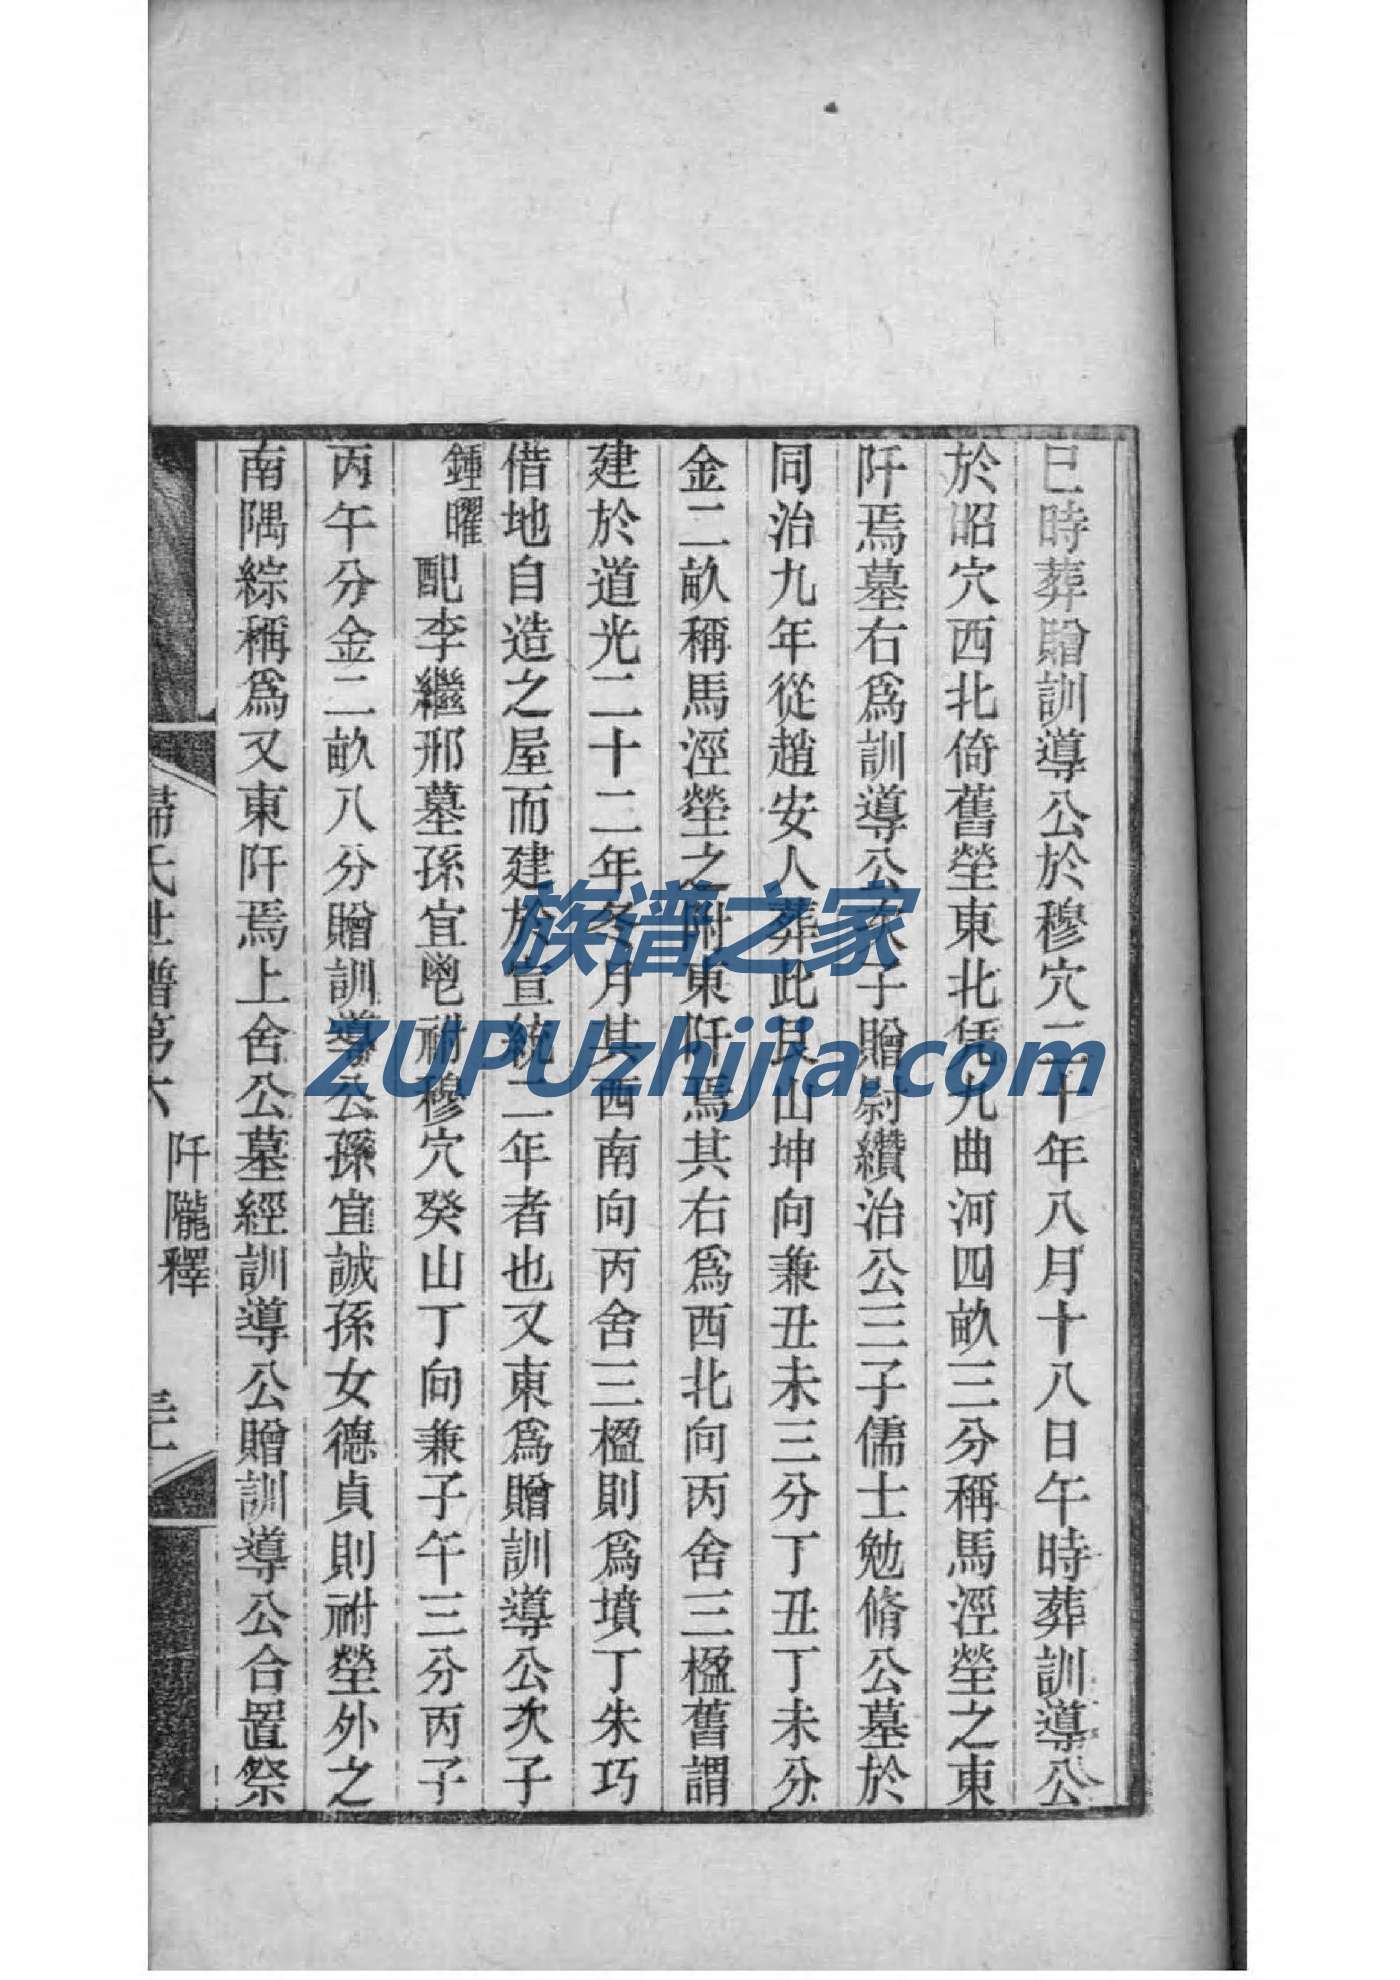 巳時葬贈訓導公於穆穴二十年八月十八日午時葬訓導公
於昭穴西北倚舊塋東北凭九曲河四畝三分稱馬涇塋之東
阡焉墓右爲訓導公次子贈尉纘治公三子儒士勉脩公墓於
同治九年從趙安人葬此艮山坤向兼丑未三分丁丑丁未分
金二畝稱馬涇塋之附東阡焉其右爲西北向丙舍三楹舊謂
建於道光二十二年冬月其西南向丙舍三楹則爲墳丁朱巧
借地自造之屋而建於宣統二年者也又東爲贈訓導公次子
鍾曜配李繼邢墓孫宜鬯祔穆穴癸山丁向兼子午三分丙子
丙午分金二畝八分贈訓導公孫宜誠孫女德貞則祔塋外之
南隅綜稱爲又東阡焉上舍公墓經訓導公贈訓導公合置祭
氏世譜第六 阡隴釋
族谱之家
ZUPUzhijia.com